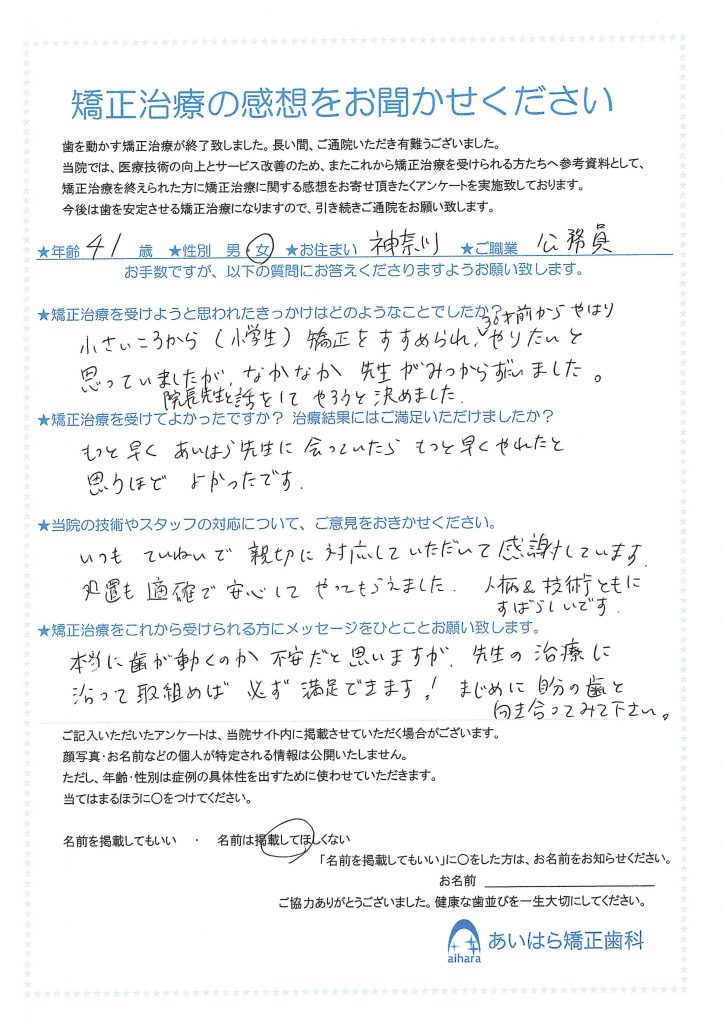 矯正治療の感想をお聞かせください
歯を動かす矯正治療が終了致しました。長い間、ご通院いただき有難うございました。
当院では、医療技術の向上とサービス改善のため、またこれから矯正治療を受けられる方たちへ参考資料として、
矯正治療を終えられた方に矯正治療に関する感想をお寄せ頂きたくアンケートを実施致しております。
今後は歯を安定させる矯正治療になりますので、引き続きご通院をお願い致します。
★年齢 41 歳 ★性別 男 女 ★お住まい 神奈川 ★ご職業 公務員
お手数ですが、以下の質問にお答えくださりますようお願い致します。
★矯正治療を受けようと思われたきっかけはどのようなことでしたか?
30才前からやはり
小さいころから(小学生)矯正をすすめられ、やりたいと
思っていましたが、なかなか先生がみつからずいました。
院長先生と話をして やろうと決めました.
★矯正治療を受けてよかったですか? 治療結果にはご満足いただけましたか?
もっと早く あいはら先生に会っていたら もっと早くやれたと
思うほど よかったです.
★当院の技術やスタッフの対応について、ご意見をおきかせください。
いつも ていねいで 親切に対応していただいて感謝しています.
処置も適確で安心して やってもらえました. 人柄&技術ともに
すばらしいです.
★矯正治療をこれから受けられる方にメッセージをひとことお願い致します。
本当に歯が動くのか 不安だと思いますが、先生の治療に
沿って取組めば 必ず満足できます! まじめに自分の歯と
向き合ってみて下さい。
ご記入いただいたアンケートは、当院サイト内に掲載させていただく場合がございます。
顔写真・お名前などの個人が特定される情報は公開いたしません。
ただし、年齢・性別は症例の具体性を出すために使わせていただきます。
当てはまるほうに○をつけてください。
名前を掲載してもいい ・ 名前は掲載してほしくない
「名前を掲載してもいい」に○をした方は、お名前をお知らせください。
お名前
ご協力ありがとうございました。健康な歯並びを一生大切にしてください。
aihara あいはら矯正歯科